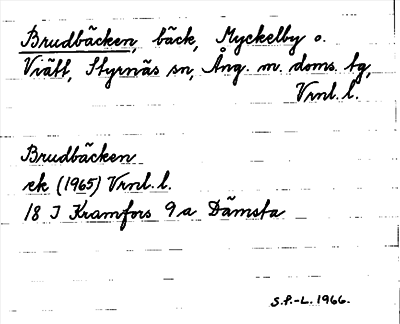 Brudbäcken, bäck, Myckelby o.
Vrätt, Styrnäs sn, Ång. m. doms. tg,
Vrnl. l.
Brudbäcken
ek (1965) Vrnl. l.
18 I Kramfors 9 a Dämsta
S.P.-L. 1966.